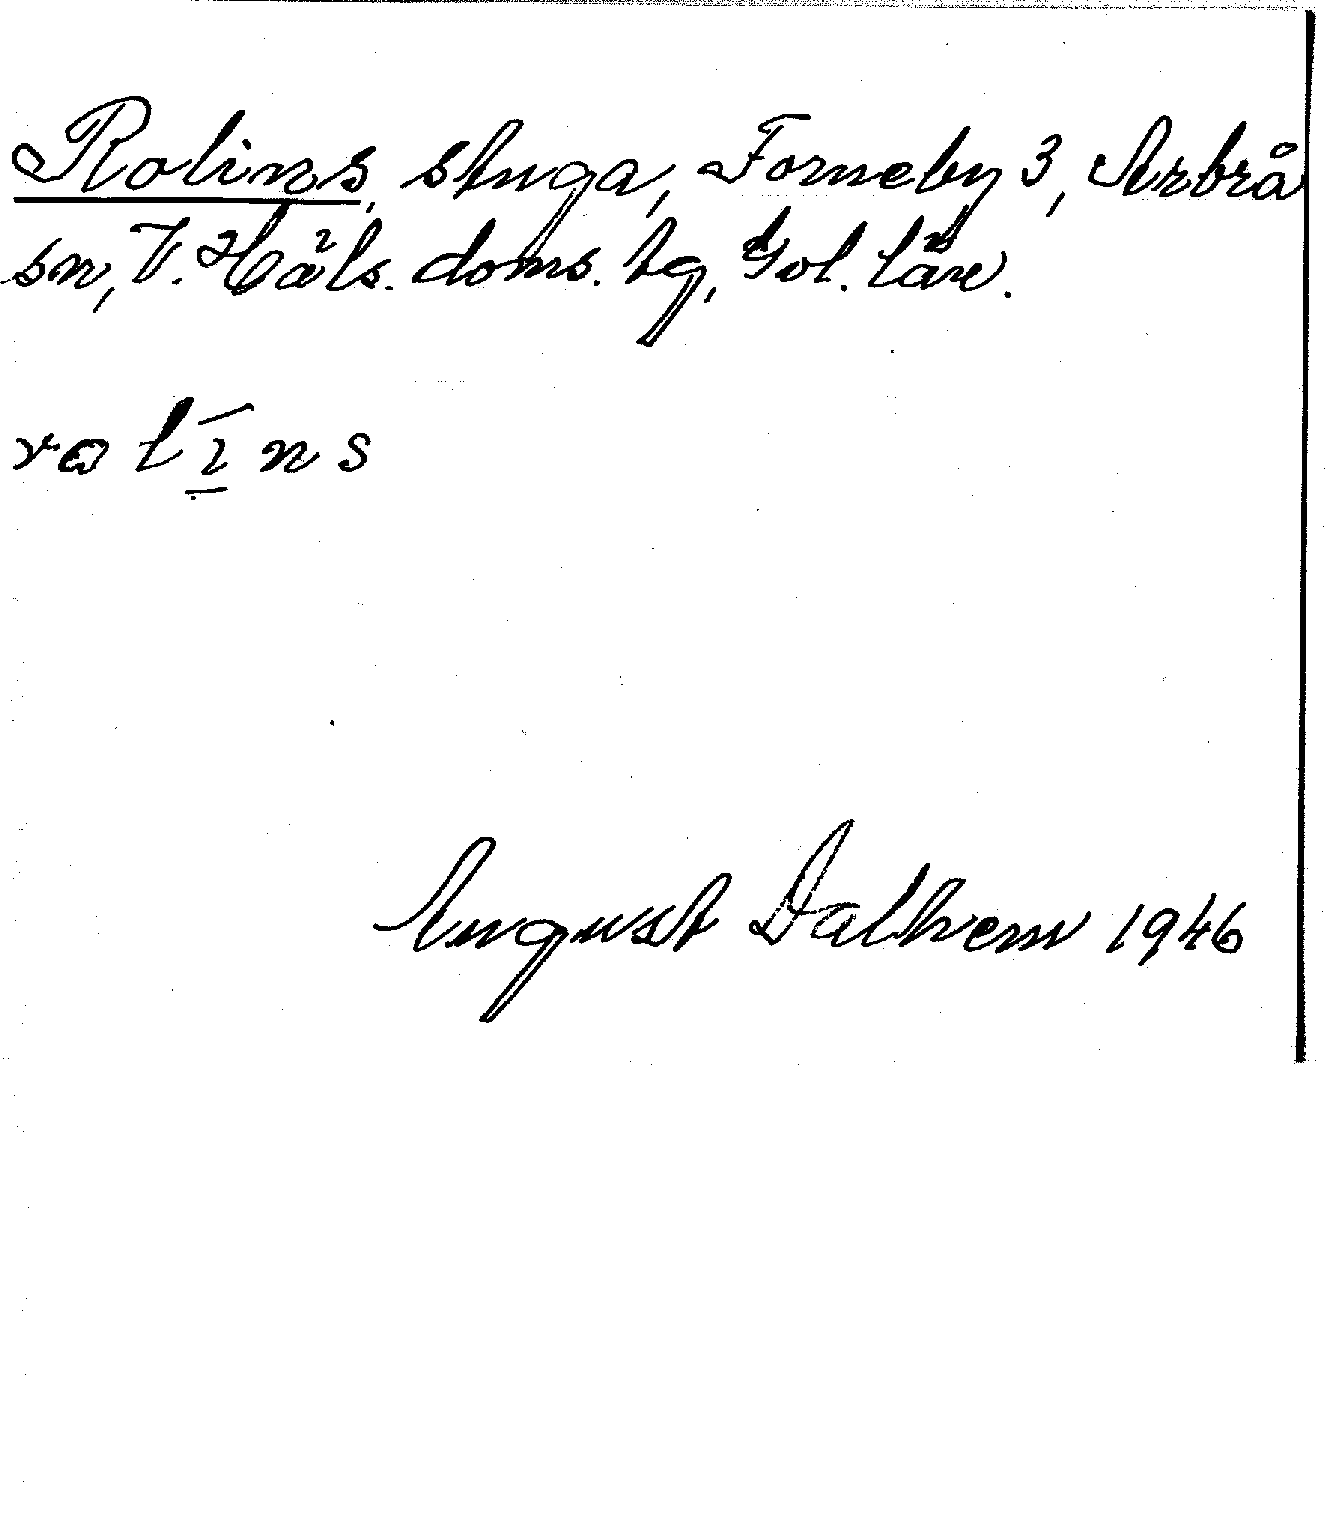 Rolins, stuga, Forneby 3, Arbrå
sn, V. Häls. doms. tg, Gol. län.
rɷlīns
August Dalhem 1946